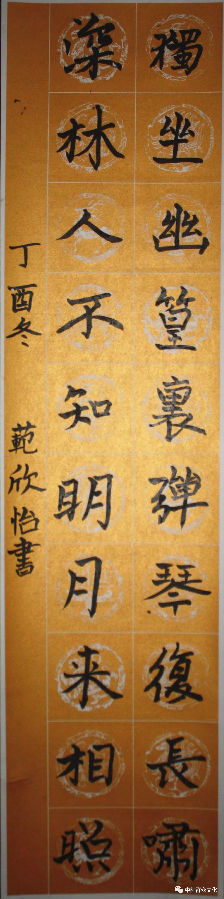 獨坐幽篁裏彈琴復長嘯
深林人不知明月来相照
丁酉冬 範欣怡書